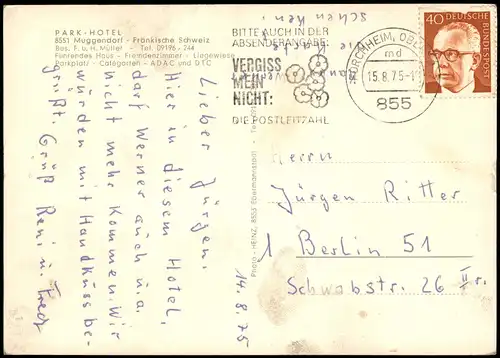 PARK-HOTEL
8551 Muggendorf - Fränkische Schweiz
Bes. F. u. H. Müller - Tel. 09196 - 244
Führendes Haus - Fremdenzimmer - Liegewiese
Parkplatz - Cafégarten - ADAC und DTC
Lieber Jürgen,
Hier in diesem Hotel,
darf Werner auch u. a.
nicht mehr kommen. Wir
würden mit Handkuss be-
grüßt. Gruß Reni u. Fred
14.8.75
BITTE AUCH IN DER
ABSENDERANGABE:
VERGISS
MEIN
NICHT:
DIE POSTLEITZAHL
FORCHHEIM, OBERFR
md
15.8.75-1
855
40
DEUTSCHE
BUNDESPOST
schenken!
Photo - HEINZ, 8553 Ebermannstadt - Tel.
Herrn
Jürgen Ritter
1 Berlin 51
Schwabstr. 26 II r.